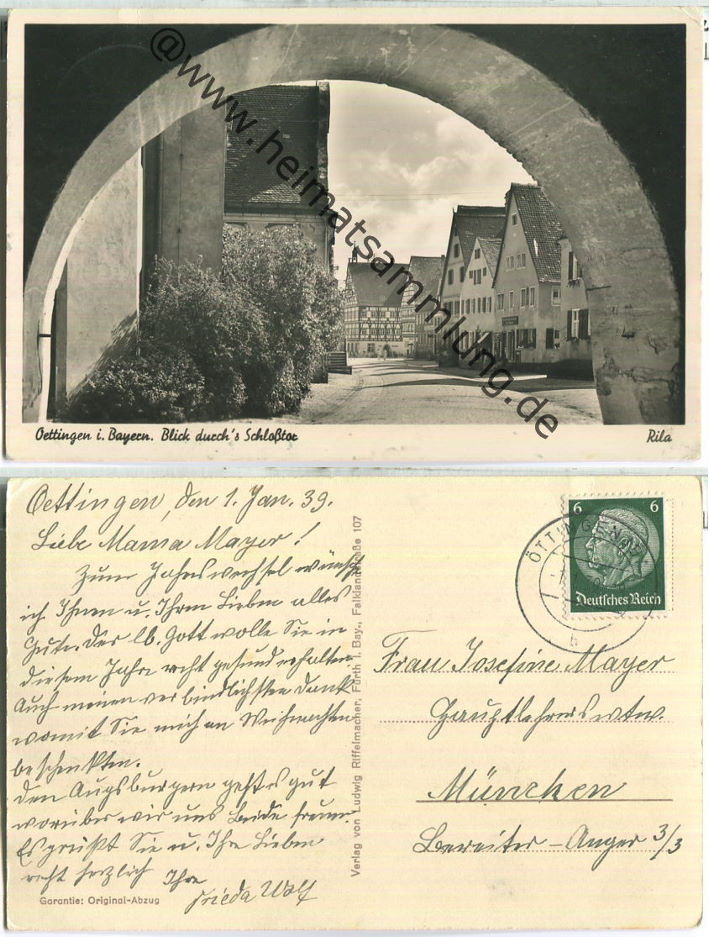 @www.heimatsammlung.de
Oettingen i. Bayern. Blick durch's Schloßtor
Rila
Oettingen, den 1. Jan. 39.
Liebe Mama Mayer!
Zum Jahreswechsel wünsche
ich Ihnen u. Ihren Lieben alles
Gute. Der lb. Gott wolle Sie in
diesem Jahre recht gesund erhalten.
Auch meinen verbindlichsten Dank
womit Sie mich an Weihnachten
beschenkten.
Den Augsburgern geht es gut
worüber wir uns beide freuen.
Es grüßt Sie u. Ihre Lieben
recht herzlich Ihre
Frieda Wolf
Garantie: Original-Abzug
Verlag von Ludwig Riffelmacher, Fürth i. Bay., Falklandstraße 107
6 6
Deutsches Reich
ÖTTINGEN
b
Frau Josefine Mayer
Hauptlehrerswtw.
München
Bereiter-Anger 3/3